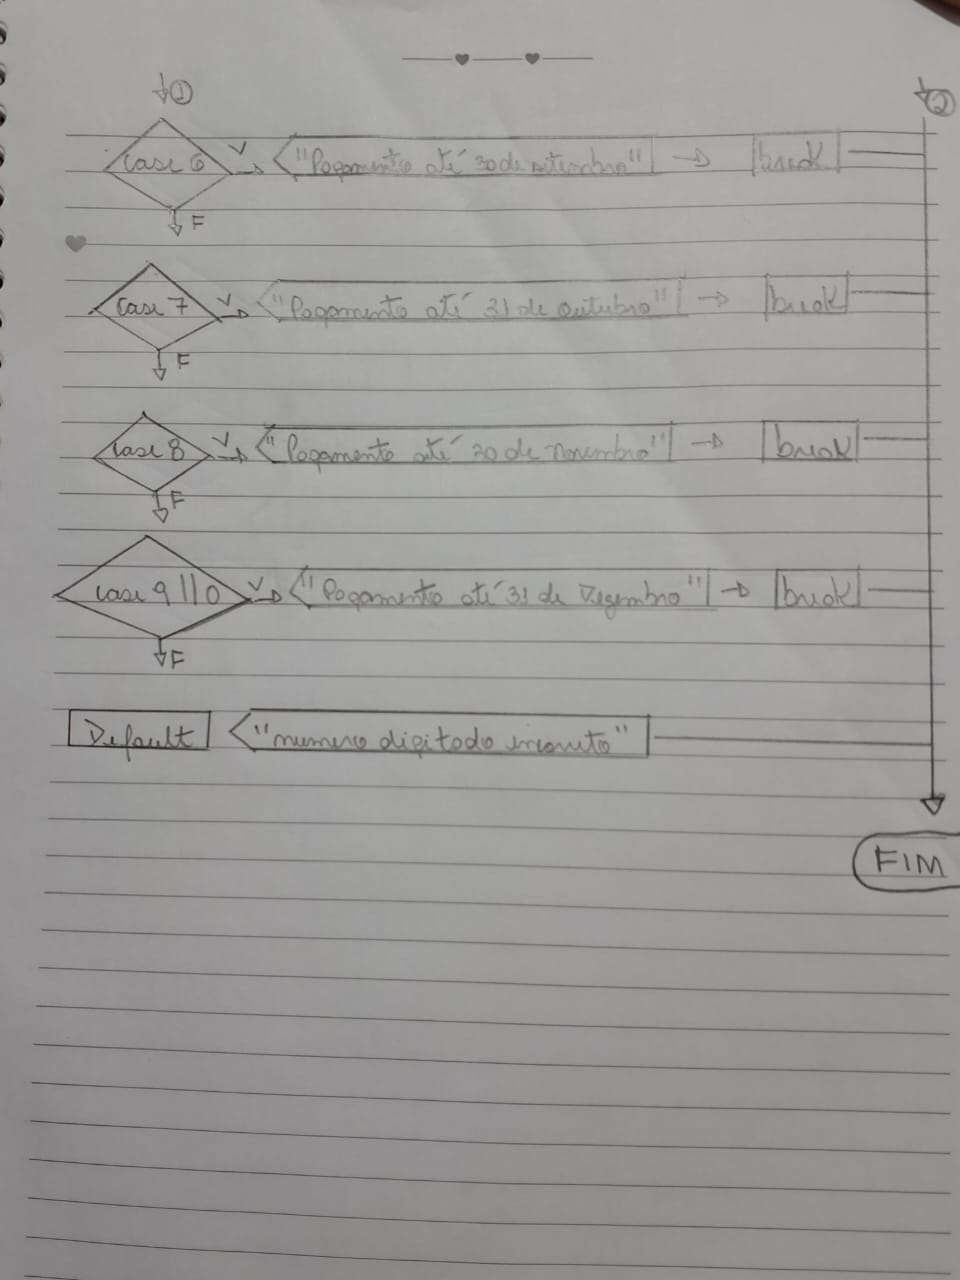 ↓① ↓②
case 6 V → "Pagamento até 30 de setembro" → break
↓ F
case 7 V → "Pagamento até 31 de outubro" → break
↓ F
case 8 V → "Pagamento até 30 de novembro" → break
↓ F
case 9 || 0 V → "Pagamento até 31 de Dezembro" → break
↓ F
Default "numero digitado incorreto"
FIM